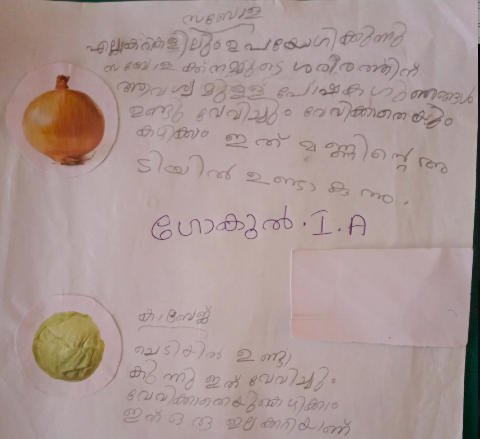 സബോള
എല്ലാകറികളിലും ഉപയോഗിക്കുന്നു
സബോളക്ക് നമ്മുടെ ശരീരത്തിന്
ആവശ്യമുള്ള പോഷക ഗുണങ്ങൾ
ഉണ്ടു വേവിച്ചും വേവിക്കാതെയും
കഴിക്കാം ഇത് മണ്ണിന്റെ അ
ടിയിൽ ഉണ്ടാകുന്നു.
ഗോകുൽ. I. A
കാബേജ്
ചെടിയിൽ ഉണ്ടാ
കുന്നു ഇത് വേവിച്ചും
വേവിക്കാതെയും കഴിക്കാം
ഇത് ഒരു ഇല കറിയാണ്